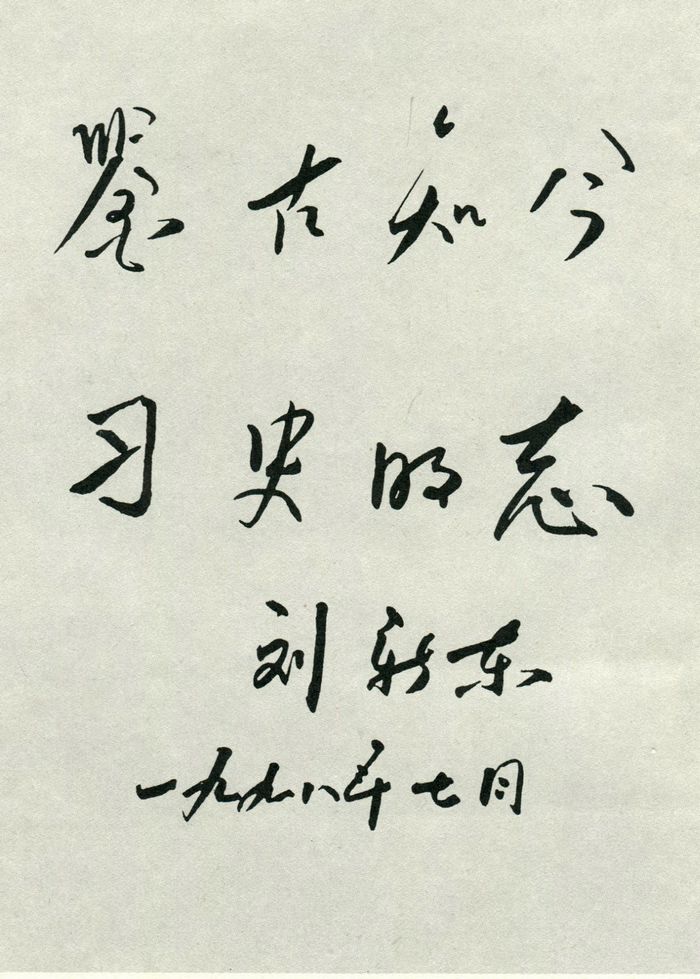 鉴古知今
习史明志
刘新东
一九九八年七月